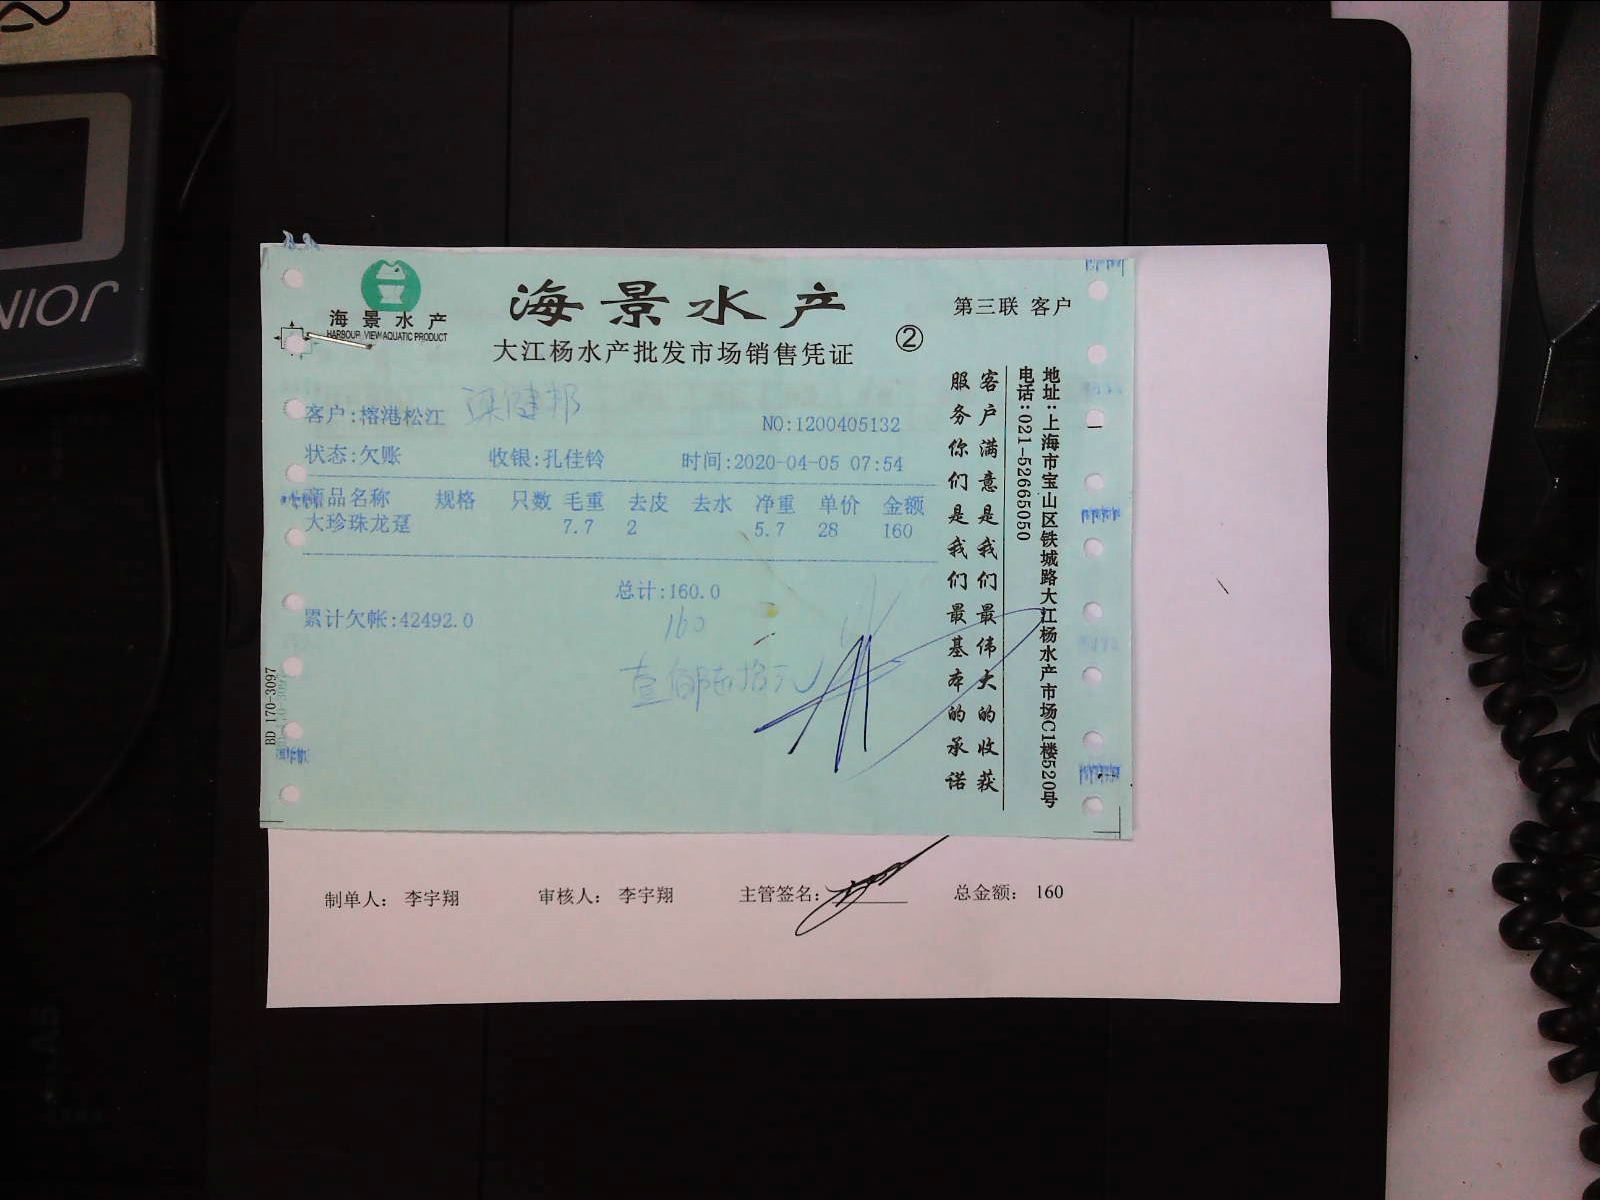 JOIN
海景水产
HARBOUR VIEW AQUATIC PRODUCT
海景水产
大江杨水产批发市场销售凭证
②
第三联 客户
客户:榕港松江 梁健邦
NO:1200405132
状态:欠账 收银:孔佳铃 时间:2020-04-05 07:54
商品名称 规格 只数 毛重 去皮 去水 净重 单价 金额
大珍珠龙趸 7.7 2 5.7 28 160
总计:160.0
累计欠帐:42492.0
160
壹佰陆拾元
客户满意是我们最伟大的收获
服务你们是我们最基本的承诺
地址:上海市宝山区铁城路大江杨水产市场C1楼520号
电话:021-52665050
BD 170-3097
制单人: 李宇翔 审核人: 李宇翔 主管签名: 总金额: 160